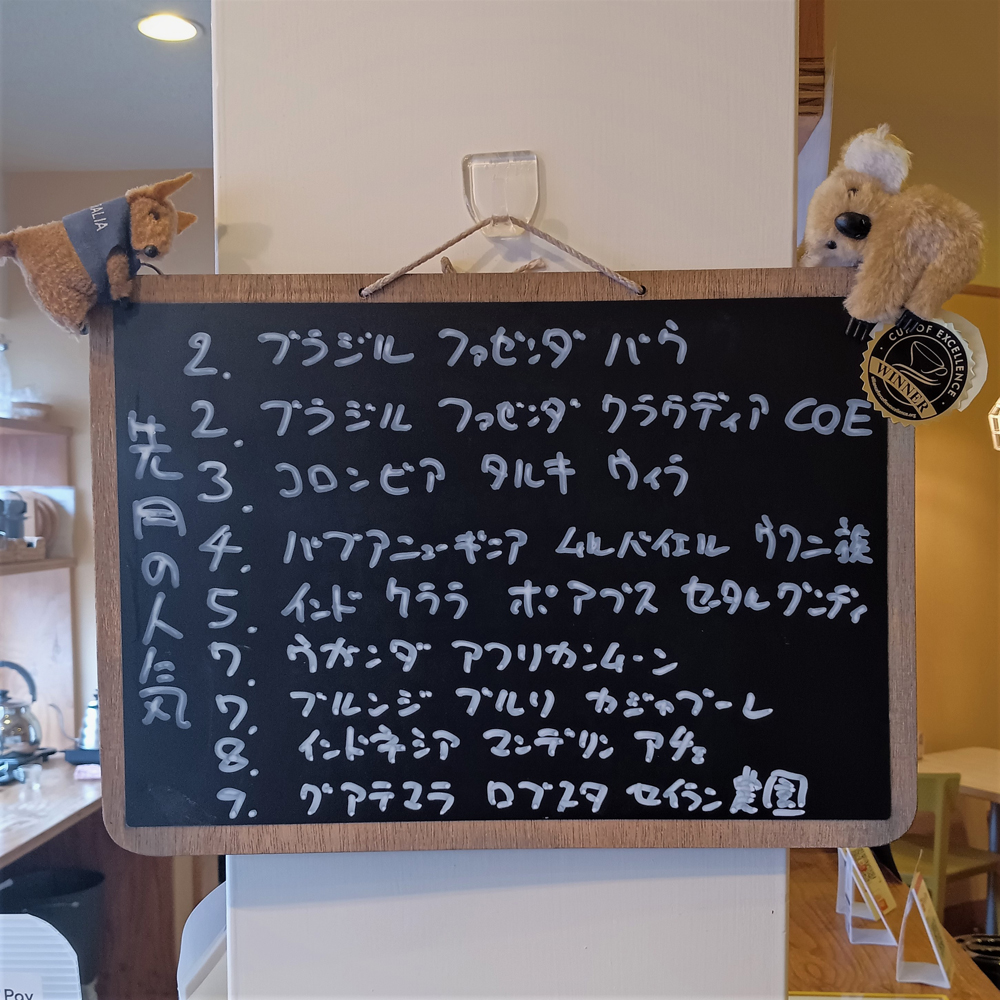 先月の人気
2. ブラジル ファゼンダ バウ
2. ブラジル ファゼンダ クラウディア COE
3. コロンビア タルキ ウィラ
4. パプアニューギニア ムルバイエル ウワニ族
5. インド ケララ ポアブス セータルグンディ
7. ウガンダ アフリカンムーン
7. ブルンジ ブルリ カジャブーレ
8. インドネシア マンデリン アチェ
9. グアテマラ ロブスタ セイラン農園
CUP OF EXCELLENCE
WINNER
ALIA
Pay